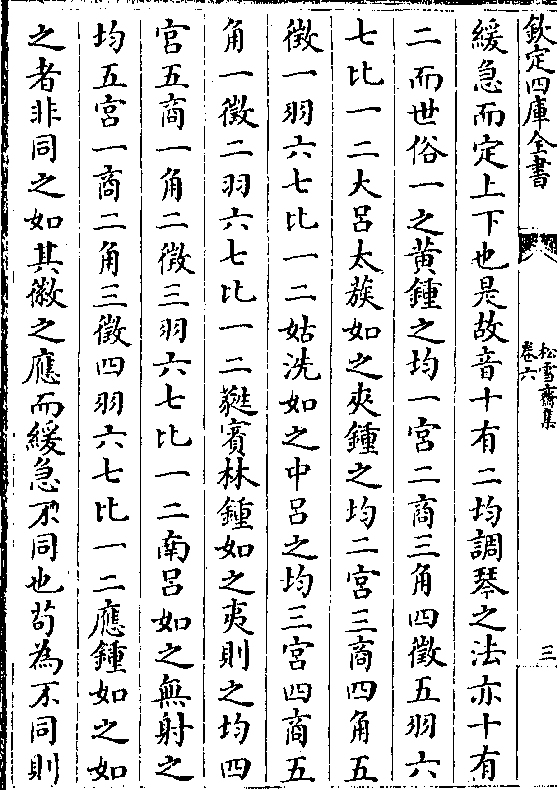 欽定四庫全書
松雪齋集
卷六
三
緩急而定上下也是故音十有二均調琴之法亦十有
二而世俗一之黃鍾之均一宮二商三角四徵五羽六
七比一二大呂太簇如之夾鍾之均二宮三商四角五
徵一羽六七比一二姑洗如之中呂之均三宮四商五
角一徵二羽六七比一二蕤賓林鍾如之夷則之均四
宮五商一角二徵三羽六七比一二南呂如之無射之
均五宮一商二角三徵四羽六七比一二應鍾如之如
之者非同之如其徽之應而緩急不同也苟為不同則